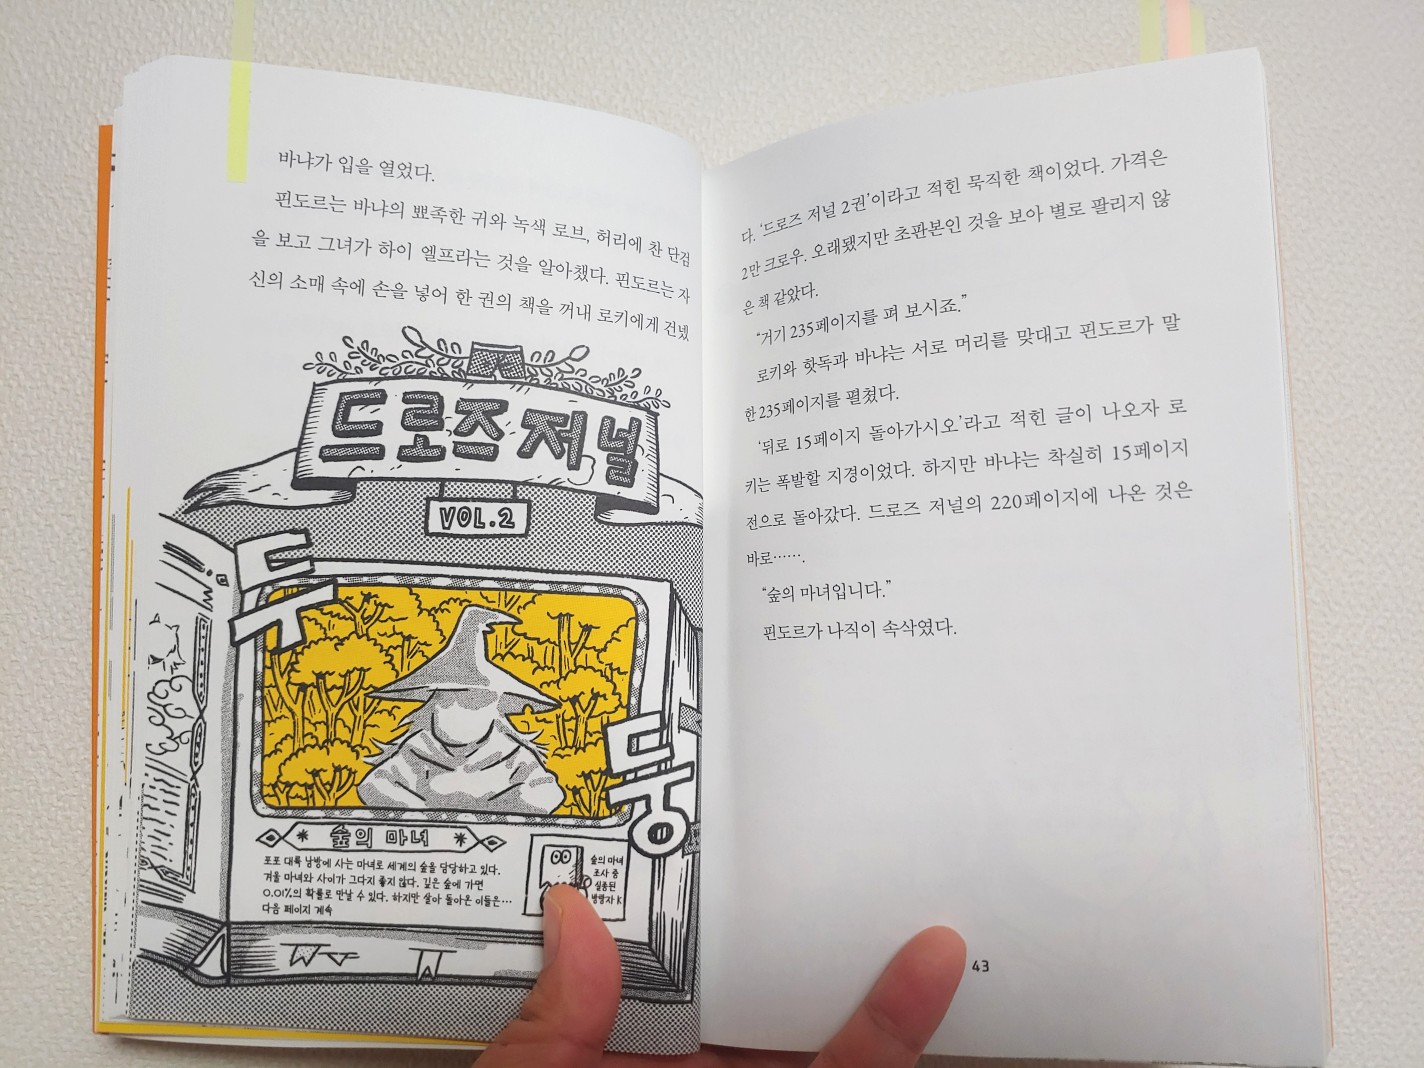 바냐가 입을 열었다.
핀도르는 바냐의 뾰족한 귀와 녹색 로브, 허리에 찬 단검
을 보고 그녀가 하이 엘프라는 것을 알아챘다. 핀도르는 자
신의 소매 속에 손을 넣어 한 권의 책을 꺼내 로키에게 건넸
드로즈 저널
VOL.2
두
둥
숲의 마녀
포포 대륙 남방에 사는 마녀로 세계의 숲을 담당하고 있다.
겨울 마녀와 사이가 그다지 좋지 않다. 깊은 숲에 가면
0.01%의 확률로 만날 수 있다. 하지만 살아 돌아온 이들은…
다음 페이지 계속
숲의 마녀
조사 중
실종된
병량자 K
다. ‘드로즈 저널 2권’이라고 적힌 묵직한 책이었다. 가격은
2만 크로우. 오래됐지만 초판본인 것을 보아 별로 팔리지 않
은 책 같았다.
“거기 235페이지를 펴 보시죠.”
로키와 핫독과 바냐는 서로 머리를 맞대고 핀도르가 말
한 235페이지를 펼쳤다.
‘뒤로 15페이지 돌아가시오’라고 적힌 글이 나오자 로
키는 폭발할 지경이었다. 하지만 바냐는 착실히 15페이지
전으로 돌아갔다. 드로즈 저널의 220페이지에 나온 것은
바로…….
“숲의 마녀입니다.”
핀도르가 나직이 속삭였다.
43